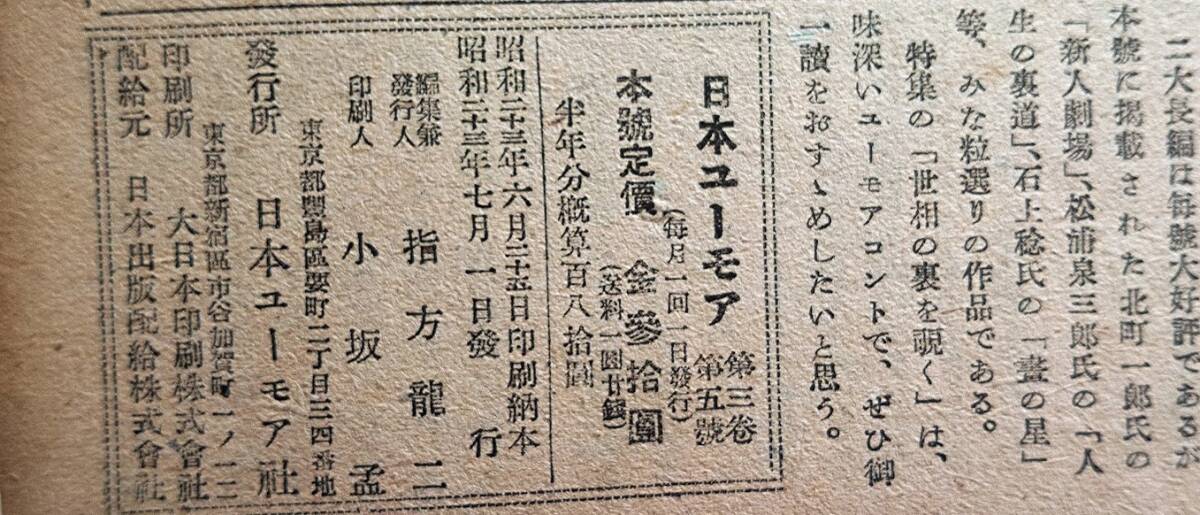 二大長編は每號大好評であるが
本號に掲載された北町一郎氏の
「新人劇場」、松浦泉三郎氏の「人
生の裏道」、石上稔氏の「晝の星」
等、みな粒選りの作品である。
特集の「世相の裏を覗く」は、
味深いユーモアコントで、ぜひ御
一讀をおすゝめしたいと思う。
日本ユーモア 第三卷 第五號
(每月一回一日發行)
本號定價 金參拾圓
(送料一圓廿錢)
半年分概算百八拾圓
昭和二十三年六月二十五日印刷納本
昭和二十三年七月一日發行
編集兼發行人 指方龍二
印刷人 小坂孟
東京都豐島區要町二丁目三四番地
發行所 日本ユーモア社
東京都新宿區市谷加賀町一ノ一二
印刷所 大日本印刷株式會社
配給元 日本出版配給株式會社